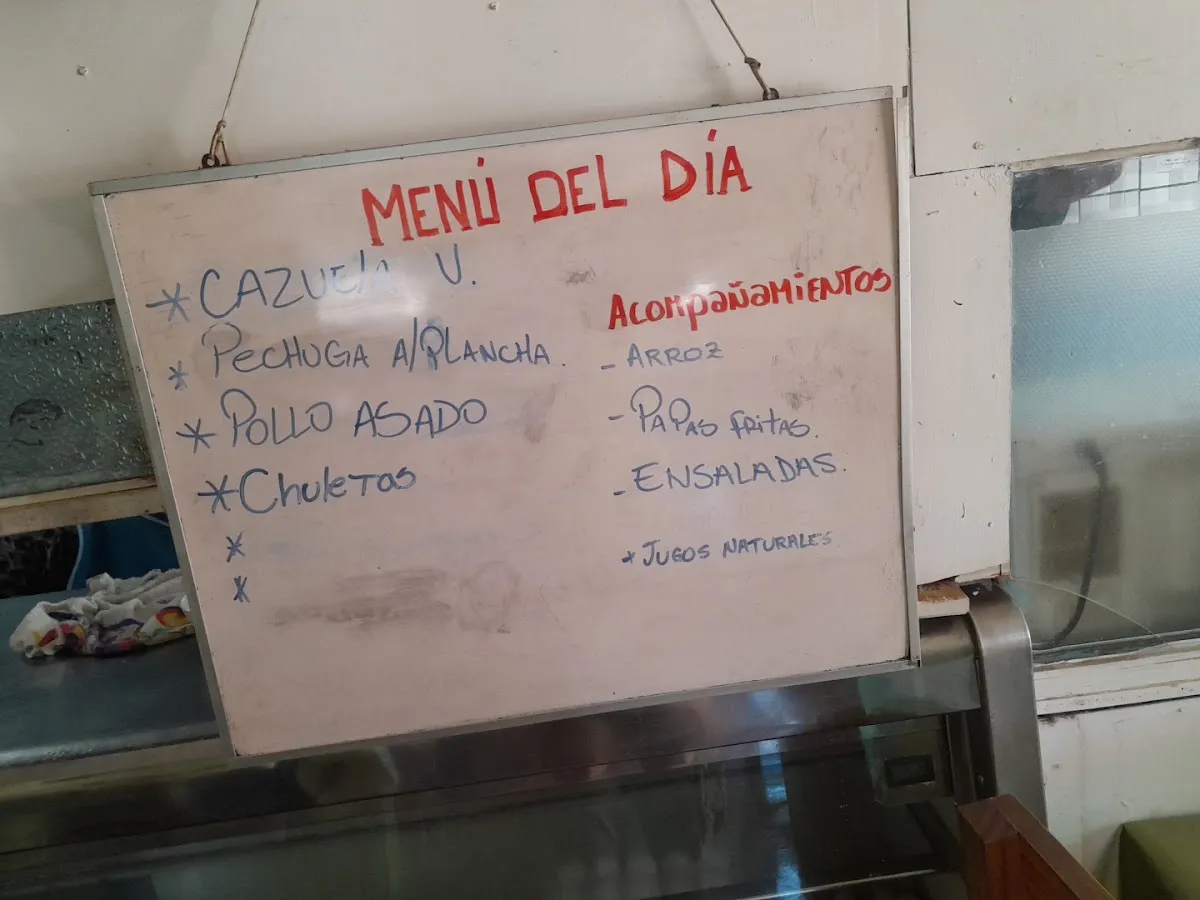 MENÚ DEL DÍA
* CAZUELA V.
* PECHUGA A/PLANCHA.
* POLLO ASADO
* CHULETAS
*
*
ACOMPAÑAMIENTOS
- ARROZ
- PAPAS FRITAS.
- ENSALADAS.
* JUGOS NATURALES